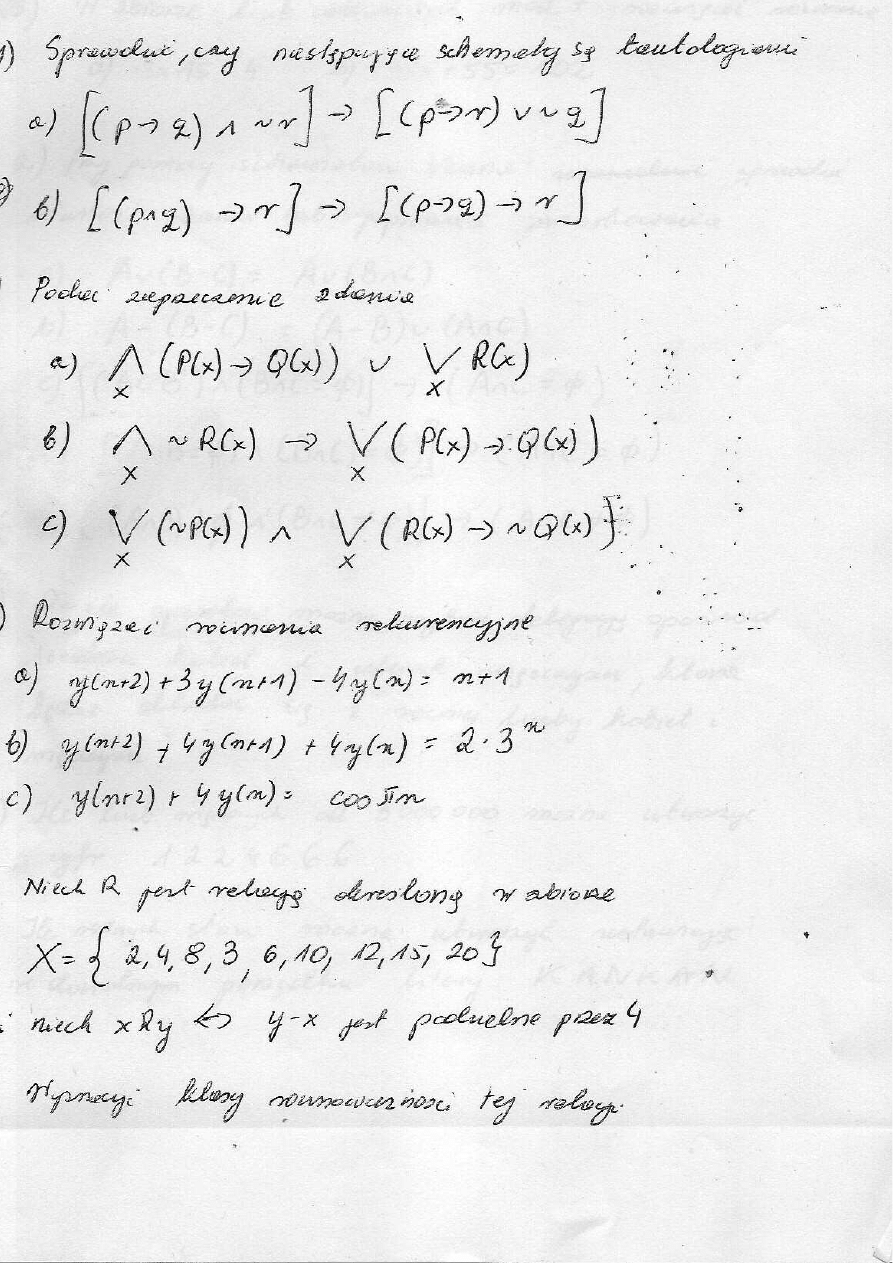 1) Sprawdzić, czy następujące schematy są tautologiami
a) [(p→q) ∧ ~r] → [(p→r) ∨ ~q]
b) [(p∧q) → r] → [(p→q) → r]
Podać zaprzeczenie zdania
a) ⋀x (P(x) → Q(x)) ∨ ⋁x R(x)
b) ⋀x ~R(x) → ⋁x (P(x) → Q(x))
c) ⋁x (~P(x)) ∧ ⋁x (R(x) → ~Q(x))
) Rozwiązać równania rekurencyjne
a) y(n+2) + 3y(n+1) - 4y(n) = n+1
b) y(n+2) + 4y(n+1) + 4y(n) = 2·3ⁿ
c) y(n+2) + 4y(n) = cos πn
Niech R jest relacją określoną w zbiorze
X = { 2, 4, 8, 3, 6, 10, 12, 15, 20 }
i niech xRy ⇔ y-x jest podzielne przez 4
Wyznaczyć klasy równoważności tej relacji